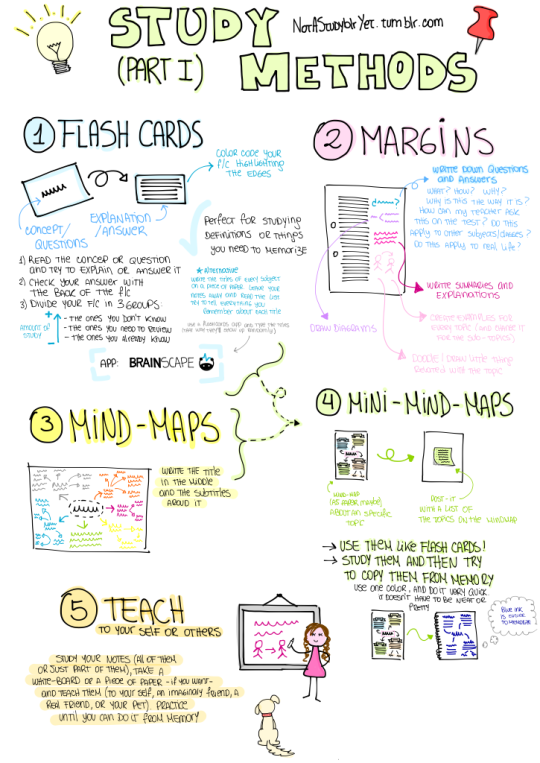 STUDY
NotAStudyblrYet.tumblr.com
(PART I) METHODS
1 FLASH CARDS
COLOR CODE YOUR
F/C HIGHLIGHTING
THE EDGES
CONCEPT/
QUESTIONS
EXPLANATION
/ANSWER
Perfect for studying
definitions or things
you need to memorize
1) READ THE CONCEP OR QUESTION
AND TRY TO EXPLAIN OR ANSWER IT
2) CHECK YOUR ANSWER WITH
THE BACK OF THE F/C
3) DIVIDE YOUR F/C IN 3 GROUPS:
+
AMOUNT OF
STUDY
-
- THE ONES YOU DON'T KNOW
- THE ONES YOU NEED TO REVIEW
- THE ONES YOU ALREADY KNOW
* Alternative
Write the titles of every subject
on a piece of paper. Leave your
notes away and read the list.
Try to tell everything you
remember about each title
APP: BRAINSCAPE
2 MARGINS
WRITE DOWN QUESTIONS
AND ANSWERS
WHAT? HOW? WHY?
WHY IS THIS THE WAY IT IS?
HOW CAN MY TEACHER ASK
THIS ON THE TEST? DO THIS
APPLY TO OTHER SUBJECTS/CLASSES?
DO THIS APPLY TO REAL LIFE?
WRITE SUMMARIES AND
EXPLANATIONS
CREATE EXAMPLES FOR
EVERY TOPIC (AND CHANGE IT
FOR THE SUB-TOPICS)
DRAW DIAGRAMS
DOODLE/DRAW LITTLE THING
RELATED WITH THE TOPIC
3 MIND-MAPS
WRITE THE TITLE
IN THE MIDDLE
AND THE SUBTITLES
AROUD IT
4 MINI-MIND-MAPS
MIND-MAP
ABOUT AN SPECIFIC
TOPIC
POST-IT
WITH A LIST OF
THE TOPICS ON THE MINDMAP
→ USE THEM LIKE FLASH CARDS!
→ STUDY THEM AND THEN TRY
TO COPY THEM FROM MEMORY
USE ONE COLOR, AND DO IT VERY QUICK
IT DOESN'T HAVE TO BE NEAT OR
PRETTY
Blue ink
is easier
to memorize
5 TEACH
TO YOUR SELF OR OTHERS
STUDY YOUR NOTES (ALL OF THEM
OR JUST PART OF THEM), TAKE A
WHITE-BOARD OR A PIECE OF PAPER -IF YOU WANT-
AND TEACH THEM (TO YOUR SELF, AN IMAGINARY FRIEND, A
REAL FRIEND, OR YOUR PET). PRACTICE
UNTIL YOU CAN DO IT FROM MEMORY